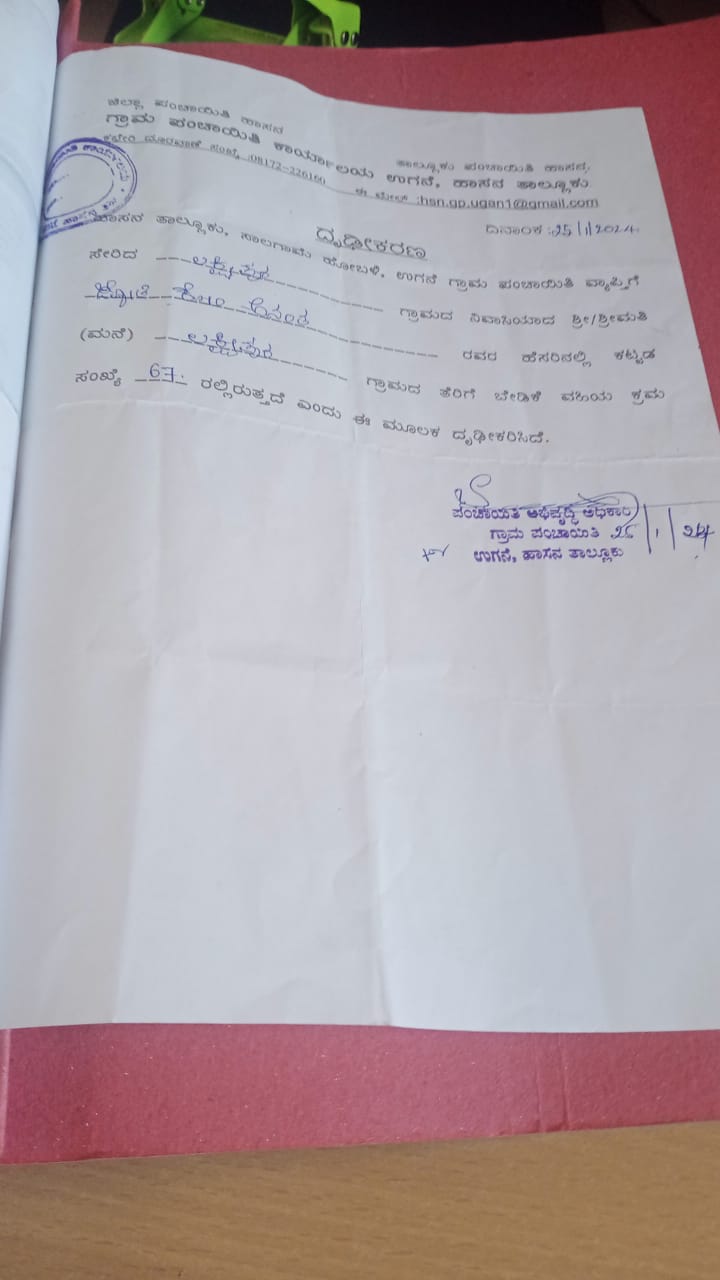 ಜಿಲ್ಲಾ ಪಂಚಾಯಿತಿ ಹಾಸನ
ತಾಲ್ಲೂಕು ಪಂಚಾಯಿತಿ ಹಾಸನ.
ಗ್ರಾಮ ಪಂಚಾಯಿತಿ ಕಾರ್ಯಾಲಯ ಉಗನೆ, ಹಾಸನ ತಾಲ್ಲೂಕು.
ಕಛೇರಿ ದೂರವಾಣಿ ಸಂಖ್ಯೆ :08172-226160 ಈ ಮೇಲ್ :hsn.gp.ugan1@gmail.com
ದಿನಾಂಕ :25/1/2024
ದೃಢೀಕರಣ
ಹಾಸನ ತಾಲ್ಲೂಕು, ಸಾಲಗಾಮೆ ಹೋಬಳಿ, ಉಗನೆ ಗ್ರಾಮ ಪಂಚಾಯಿತಿ ವ್ಯಾಪ್ತಿಗೆ
ಸೇರಿದ ಲಕ್ಷ್ಮೀಪುರ ಗ್ರಾಮದ ನಿವಾಸಿಯಾದ ಶ್ರೀ/ಶ್ರೀಮತಿ
ಜ್ಯೋತಿ ಕೋಂ ರವರ ಹೆಸರಿನಲ್ಲಿ ಕಟ್ಟಡ
(ಮನೆ) ಲಕ್ಷ್ಮೀಪುರ ಗ್ರಾಮದ ತೆರಿಗೆ ಬೇಡಿಕೆ ವಹಿಯ ಕ್ರಮ
ಸಂಖ್ಯೆ 67. ರಲ್ಲಿರುತ್ತದೆ ಎಂದು ಈ ಮೂಲಕ ದೃಢೀಕರಿಸಿದೆ.
ಪಂಚಾಯಿತಿ ಅಭಿವೃದ್ಧಿ ಅಧಿಕಾರಿ
ಗ್ರಾಮ ಪಂಚಾಯಿತಿ 25/1/24
ಉಗನೆ, ಹಾಸನ ತಾಲ್ಲೂಕು